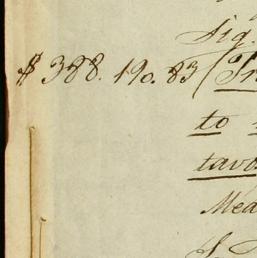 Sig.
$ 388. 190. 83 (In
to
tavo
Mea